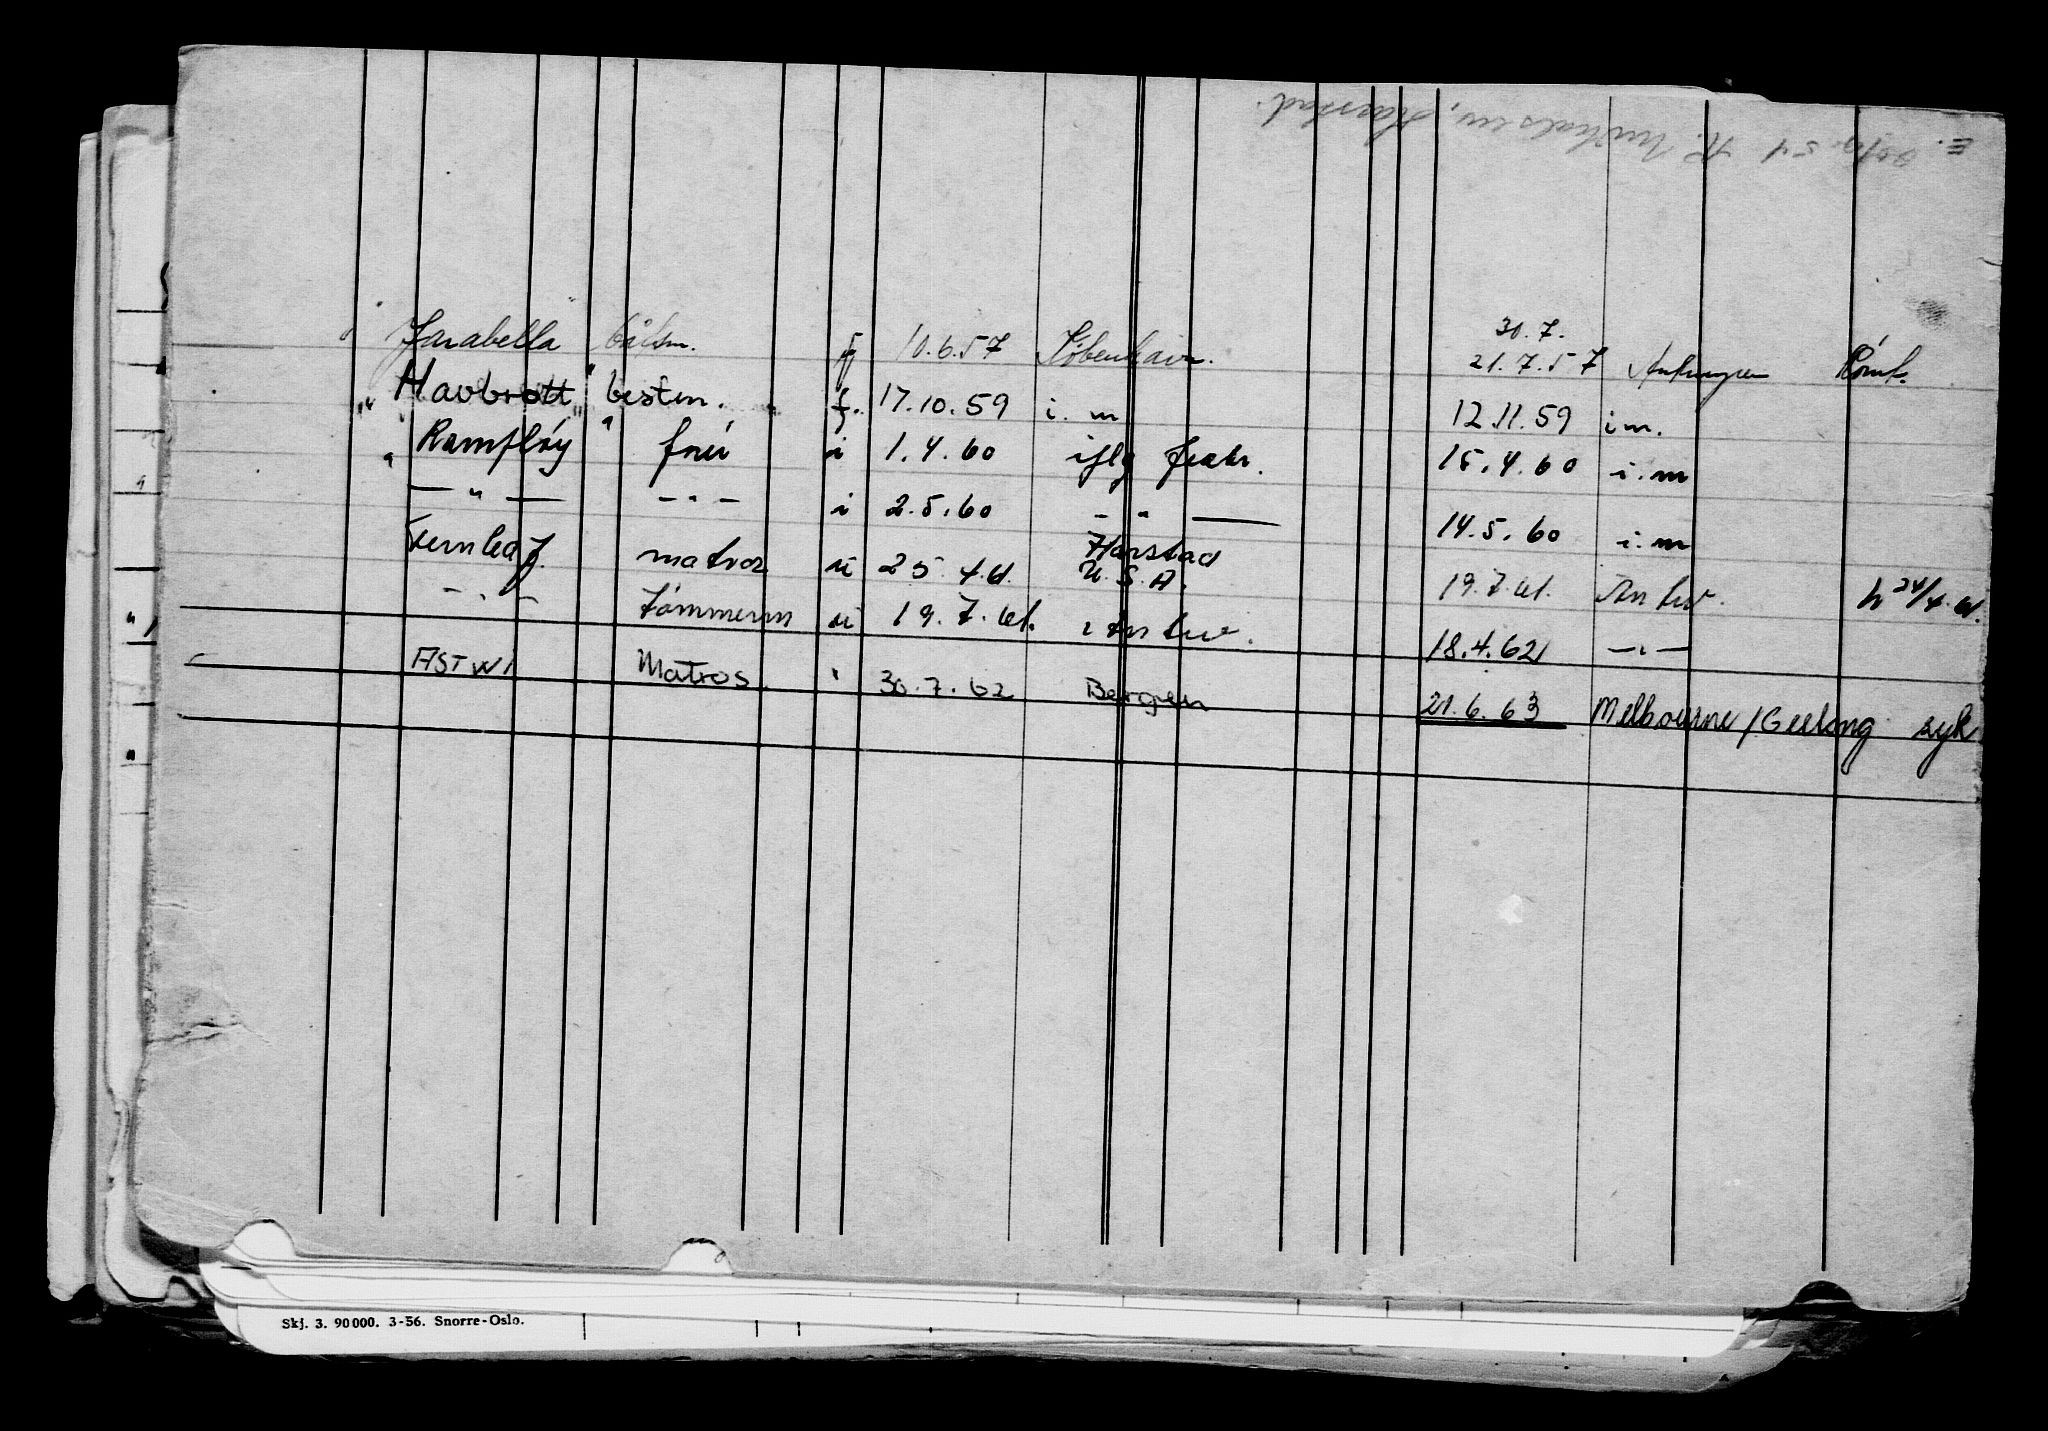 "Jarabella" båtsm. f 10.6.57 København. 30.7. 21.7.57 Antwerpen
"Havbrott" bestm. f. 17.10.59 i. m 12.11.59 i m.
"Ramfløy" i 1.4.60 iflg 15.4.60 i. m
— " — - " - i 2.5.60 - " — 14.5.60 i. m
Fernleaf matros u 25.4.61. Harstad U.S.A. 19.7.61. Antw. h 24/4.61.
- " - tömmerm u 19.7.61. Antw. 18.4.62 — " —
ASTWI Matros. " 30.7.62 Bergen 21.6.63 Melbourne/Geelong syk
Skj. 3. 90 000. 3-56. Snorre-Oslo.